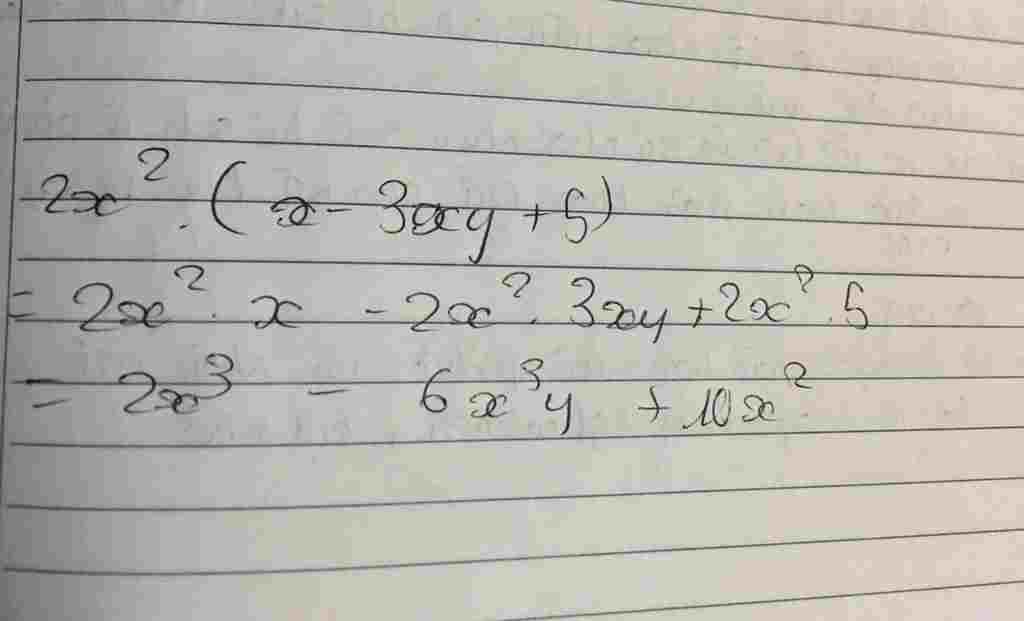 2x² . (x - 3xy + 5)
= 2x² . x - 2x² . 3xy + 2x² . 5
= 2x³ - 6x³y + 10x²